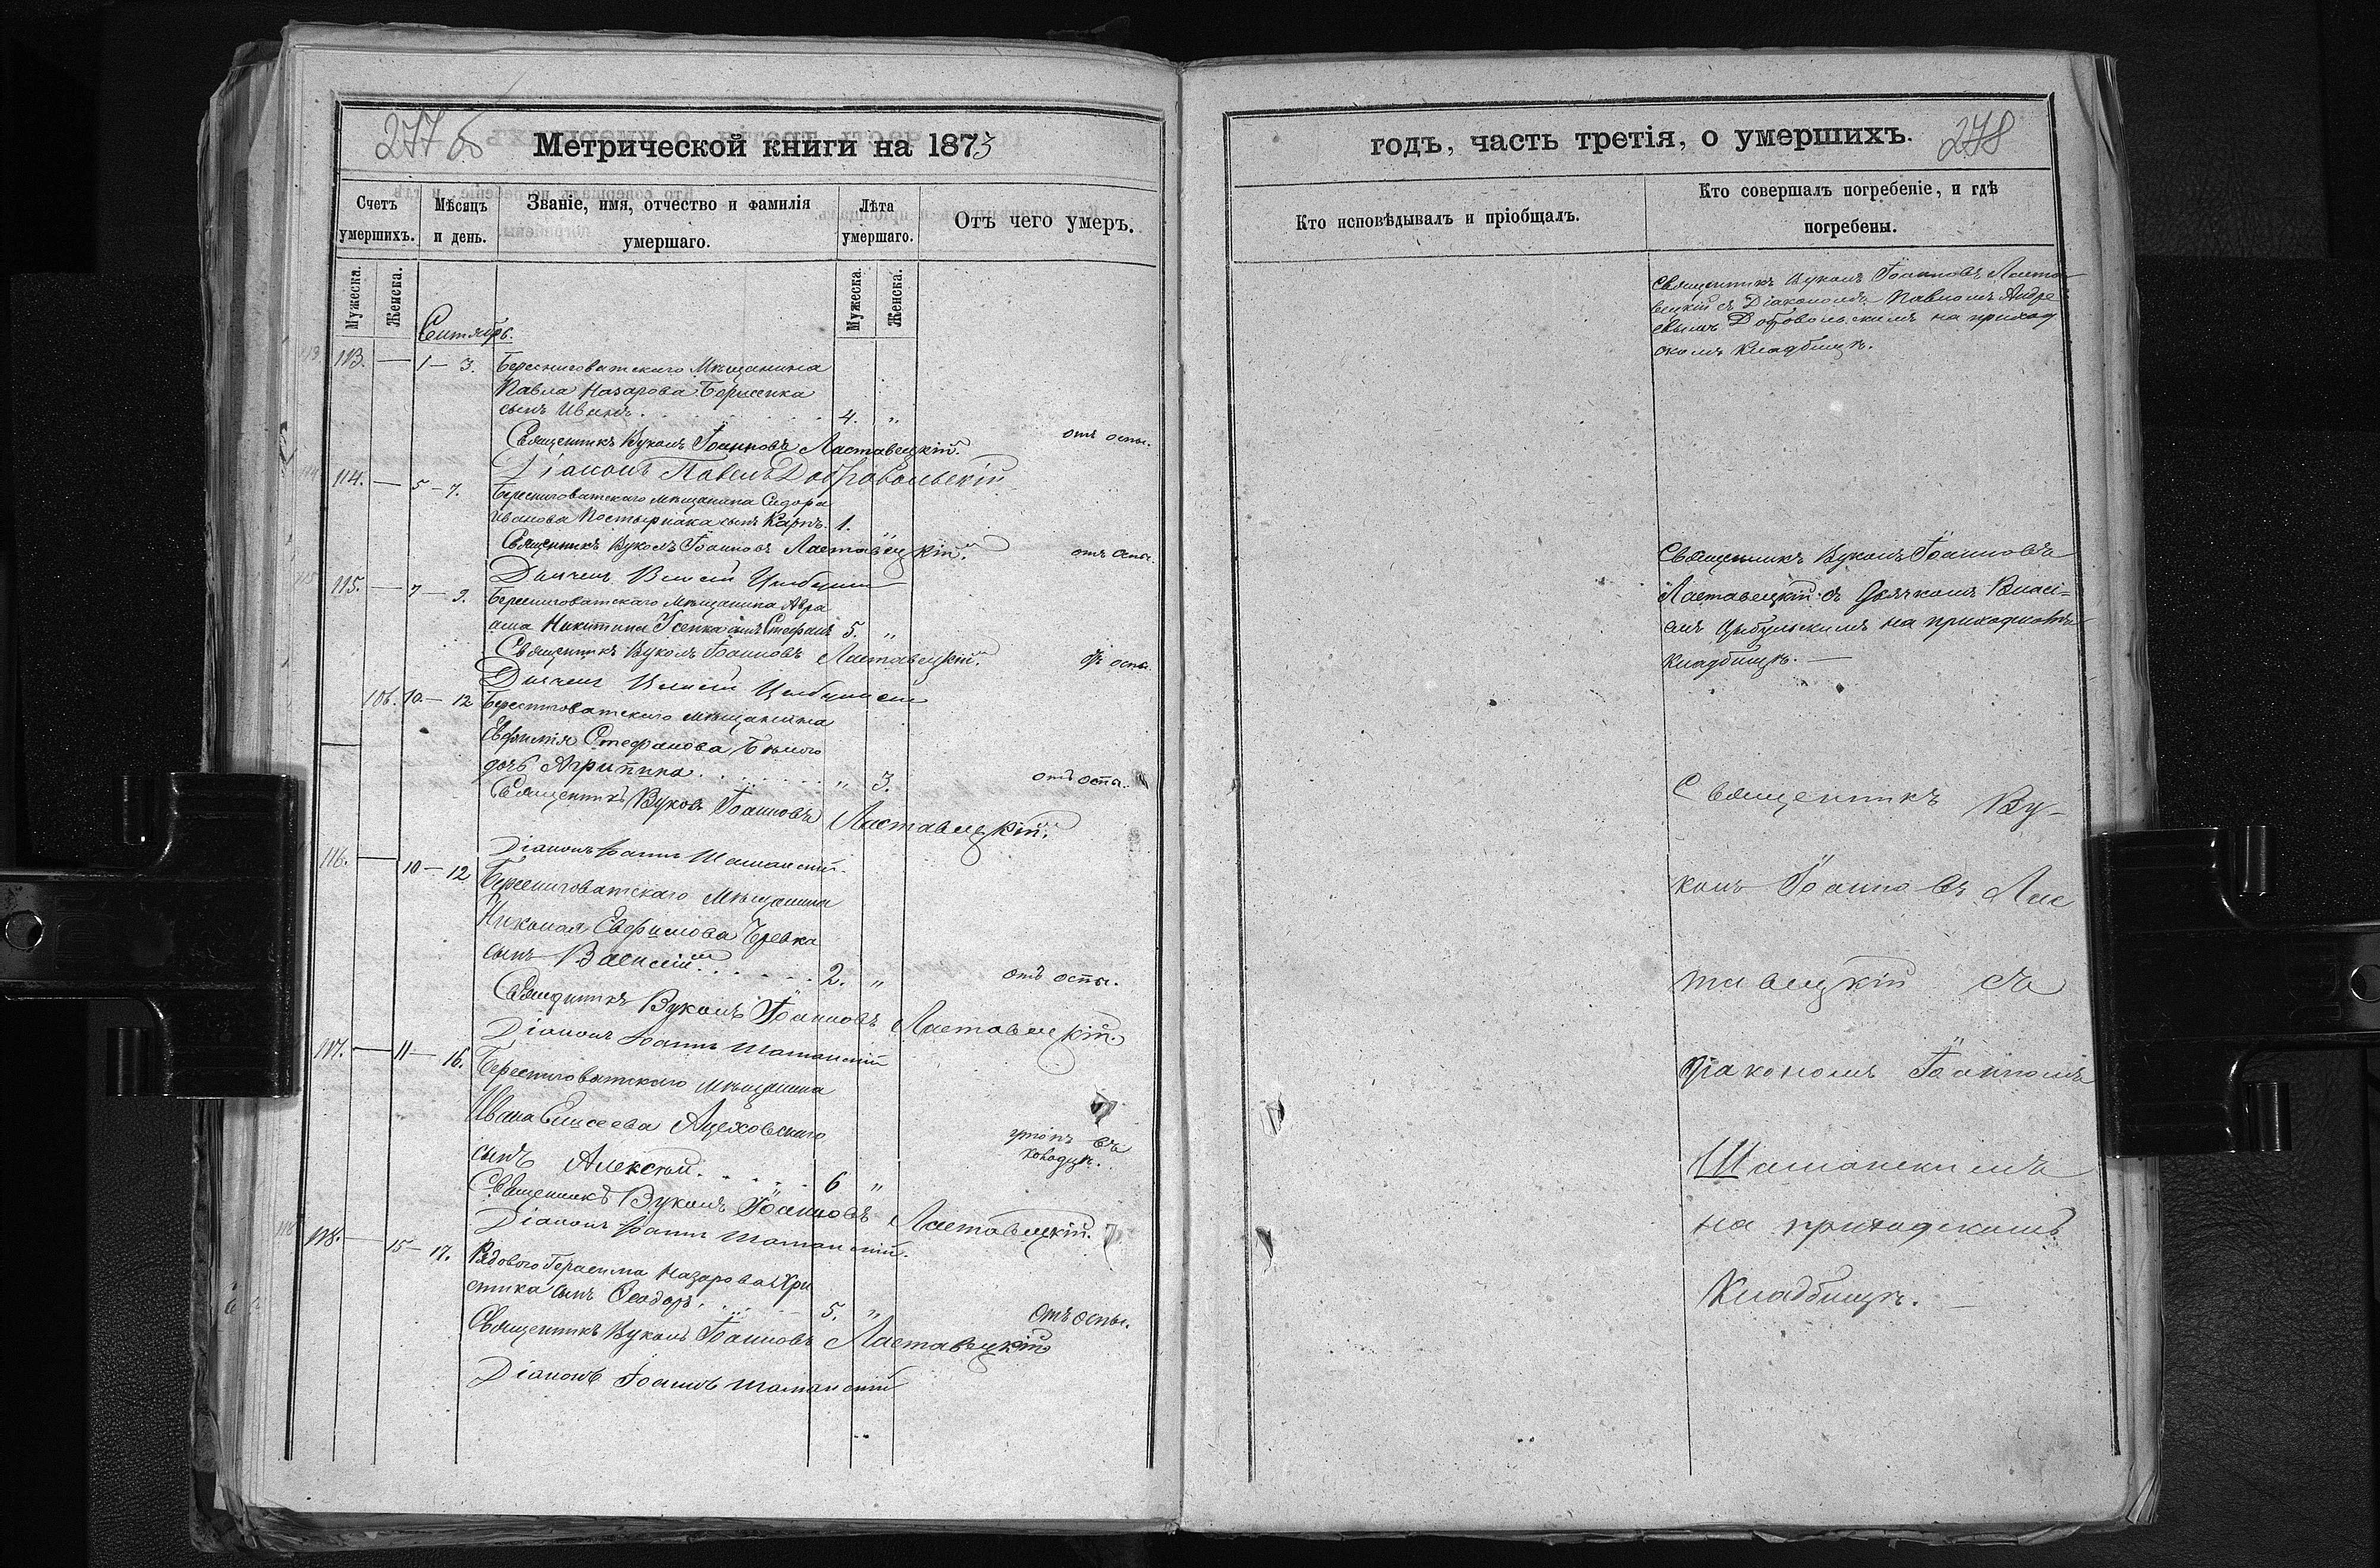 277 об
Метрической книги на 1873
Счетъ умершихъ.
Мѣсяцъ и день.
Званіе, имя, отчество и фамилія умершаго.
Лѣта умершаго.
Отъ чего умеръ.
Мужеска.
Женска.
Мужеска
Женска.
Сентябрь.
113. — 1 — 3. Берестоватскаго Мѣщанина
Павла Назарова
сынъ Иванъ. 4. „
отъ оспы.
Священникъ Вуколъ Іоанновъ Ластавецкій.
Діаконъ Павелъ Добровольскій
114. — 5 — 7. Берестоватскаго мѣщанина Сидора
Иванова сынъ Карпъ. 1. „
отъ оспы.
Священникъ Вуколъ Іоанновъ Ластавецкій.
Дьячекъ Власій Цыбульскій
115. — 7 — 9. Берестоватскаго Мѣщанина Авра
ама Никитина Усенка сынъ Стефанъ 5. „
отъ оспы.
Священникъ Вуколъ Іоанновъ Ластавецкій.
Дьячекъ Власій Цыбульскій
106. 10. — 12 Берестоватскаго мѣщанина
Евфимія Стефанова Бѣлого
дочь Агрипина. „ 3.
отъ оспы.
Священникъ Вуколъ Іоанновъ Ластавецкій.
Діаконъ Іоаннъ Шаманскій.
116. — 10 — 12 Берестоватскаго Мѣщанина
Николая Евфимова Чревка
сынъ Василій. 2. „
отъ оспы.
Священникъ Вуколъ Іоанновъ Ластавецкій.
Діаконъ Іоаннъ Шаманскій
117. — 11 — 16. Берестоватскаго мѣщанина
Ивана Елисеева Ацеховскаго
утопъ въ
колодцѣ.
сынъ Алексѣй. 6 „
Священникъ Вуколъ Іоанновъ Ластавецкій.
Діаконъ Іоаннъ Шаманскій.
118. — 15 — 17. Рядового Герасима Назарова Хри
стика сынъ Ѳеодоръ. 5. „
отъ оспы.
Священникъ Вуколъ Іоанновъ Ластавецкій
Діаконъ Іоаннъ Шаманскій
годъ, часть третія, о умершихъ.
278
Кто исповѣдывалъ и пріобщалъ.
Кто совершалъ погребеніе, и гдѣ
погребены.
Священникъ Вуколъ Іоанновъ Ласта
вецкій съ Діакономъ Павломъ Андре
евымъ Добровольскимъ на приход
скомъ кладбищѣ.
Священникъ Вуколъ Іоанновъ
Ластавецкій съ Дьячкомъ Власі=
емъ Цыбульскимъ на приходскомъ
кладбищѣ. —
Священникъ Ву-
колъ Іоанновъ Лас
тавецкій съ
Діакономъ Іоанномъ
Шаманскимъ
на приходскомъ
Кладбищѣ. —